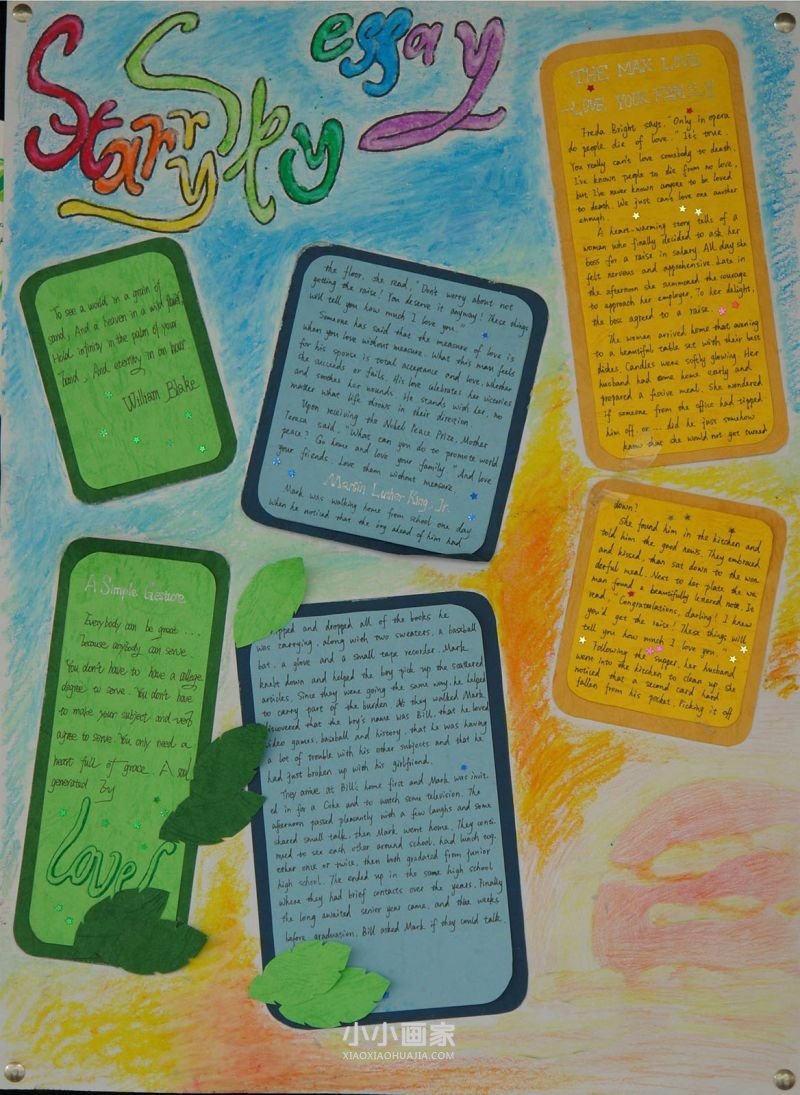 Starry Sky essay
THE MAN LOVE
-LOVE YOUR FAMILY
Freda Bright says. "Only in opera
do people die of love." It's true.
You really can't love somebody to death.
I've known people to die from no love,
but I've never known anyone to be loved
to death. We just can't love one another
enough.
A heart-warming story tells of a
woman who finally decided to ask her
boss for a raise in salary. All day she
felt nervous and apprehensive. Late in
the afternoon she summoned the courage
to approach her employer. To her delight,
the boss agreed to a raise.
The woman arrived home that evening
to a beautiful table set with their best
dishes. Candles were softly glowing. Her
husband had come home early and
prepared a festive meal. She wondered
if someone from the office had tipped
him off, or... did he just somehow
know that she would not get turned
down?
She found him in the kitchen and
told him the good news. They embraced
and kissed, than sat down to the won
derful meal. Next to her plate the wo
man found a beautifully lettered note. It
read. "Congratulations, darling! I knew
you'd get the raise! These things will
tell you how much I love you."
Following the supper, her husband
went into the kitchen to clean up. She
noticed that a second card had
fallen from his pocket. Picking it off
the floor, she read, "Don't worry about not
getting the raise! You deserve it anyway! These things
will tell you how much I love you."
Someone has said that the measure of love is
when you love without measure. What this man feels
for his spouse is total acceptance and love, whether
she succeeds or fails. His love celebrates her victories
and soothes her wounds. He stands with her, no
matter what life throws in their direction.
Upon receiving the Nobel Peace Prize, Mother
Teresa said. "What can you do to promote world
peace? Go home and love your family." And love
your friends. Love them without measure.
Martin Luther King. Jr.
Mark was walking home from school one day
when he noticed that the boy ahead of him had
tripped and dropped all of the books he
was carrying, along with two sweaters, a baseball
bat, a glove and a small tape recorder. Mark
knelt down and helped the boy pick up the scattered
articles. Since they were going the same way, he helped
to carry part of the burden. As they walked Mark
discovered that the boy's name was Bill, that he loved
video games, baseball and history, that he was having
a lot of trouble with his other subjects and that he
had just broken up with his girlfriend.
They arrive at Bill's home first and Mark was invit
ed in for a Coke and to watch some television. The
afternoon passed pleasantly with a few laughs and some
shared small talk, then Mark went home. They conti
nued to see each other around school, had lunch tog
ether once or twice, then both graduated from junior
high school. The ended up in the same high school
where they had brief contacts over the years. Finally
the long awaited senior year came, and three weeks
before graduation, Bill asked Mark if they could talk.
To see a world in a grain of
sand, And a heaven in a wild flower,
Hold infinity in the palm of your
hand, And eternity in an hour
William Blake
A Simple Gesture
Everybody can be great ...
because anybody can serve.
You don't have to have a college
degree to serve. You don't have
to make your subject and verb
agree to serve. You only need a
heart full of grace. A soul
generated by
love!
小小画家
XIAOXIAOHUAJIA.COM